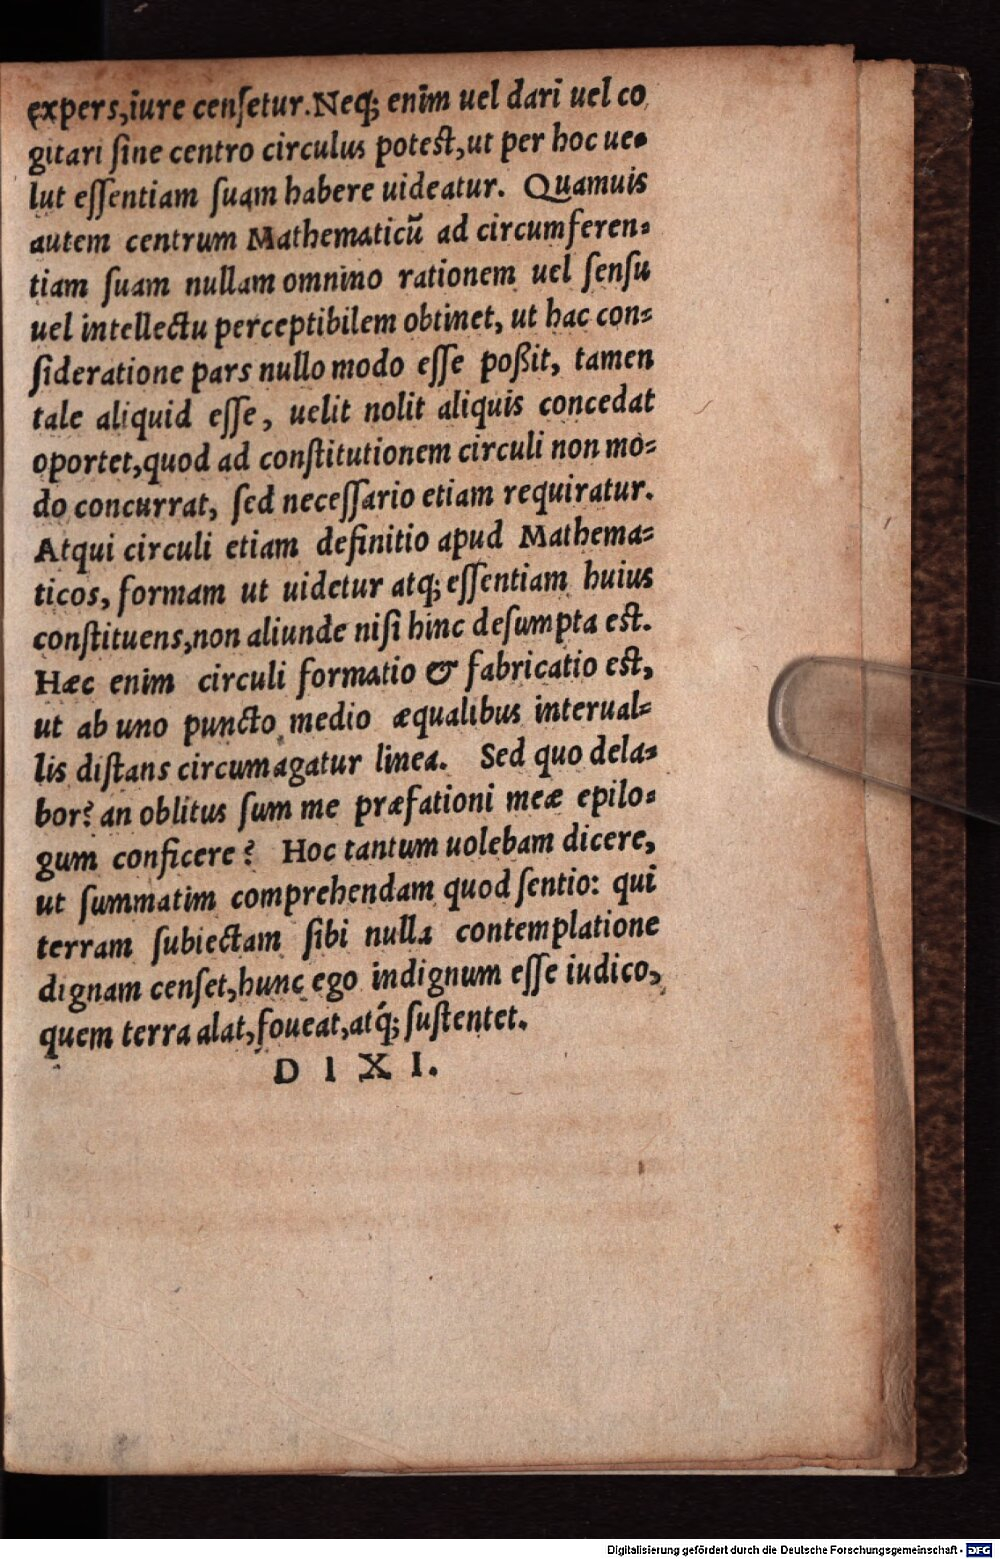 expers,iure cenſetur.Neq; enim uel dari uel co
gitari ſine centro circulus poteſt,ut per hoc ue-
lut eſſentiam ſuam habere uideatur. Quamuis
autem centrum Mathematicũ ad circumferen-
tiam ſuam nullam omnino rationem uel ſenſu
uel intellectu perceptibilem obtinet, ut hac con-
ſideratione pars nullo modo eſſe poßit, tamen
tale aliquid eſſe, uelit nolit aliquis concedat
oportet,quod ad conſtitutionem circuli non mo-
do concurrat, ſed neceſſario etiam requiratur.
Atqui circuli etiam definitio apud Mathema-
ticos, formam ut uidetur atq; eſſentiam huius
conſtituens,non aliunde niſi hinc deſumpta eſt.
Hæc enim circuli formatio & fabricatio eſt,
ut ab uno puncto medio æqualibus interual-
lis diſtans circumagatur linea. Sed quo dela-
bor? an oblitus ſum me præfationi meæ epilo-
gum conficere? Hoc tantum uolebam dicere,
ut ſummatim comprehendam quod ſentio: qui
terram ſubiectam ſibi nulla contemplatione
dignam cenſet,hunc ego indignum eſſe iudico,
quem terra alat,foueat,atq́; ſuſtentet.
D I X I.
Digitalisierung gefördert durch die Deutsche Forschungsgemeinschaft - DFG